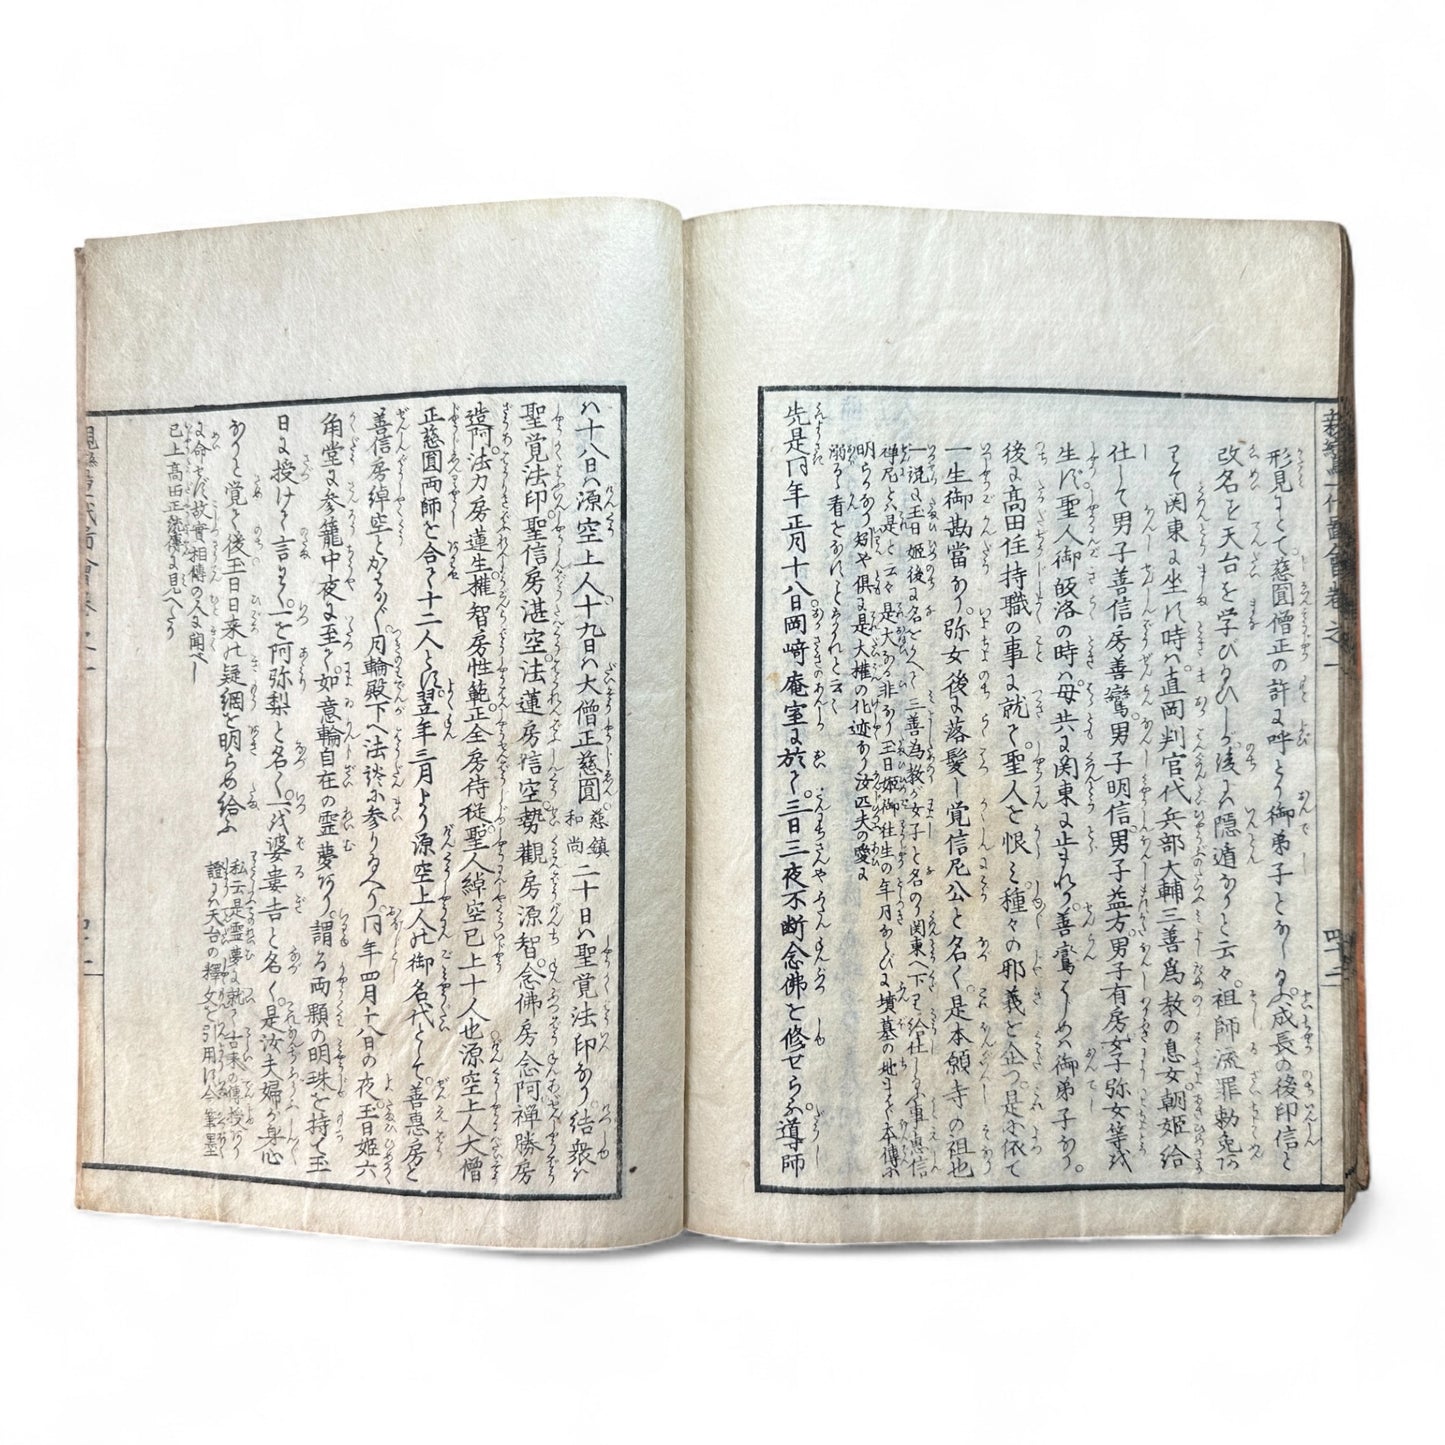 形見にとて。慈圓僧正の許に呼とり御弟子となしゐふ。成長の後印信と
改名し天台を学びゐひしが。後には隠遁なりと云々。祖師流罪勅免の
にて関東に坐します時は。直岡判官代兵部大輔三善為教の息女。朝姫給
仕して男子善信房善鸞。男子明信男子益方。男子有房。女子弥女等を
生ず。聖人御皈洛の時は。母共に関東に止まれり。善鸞はじめは御弟子なり。
後に高田住持職の事に就て。聖人を恨み種々の邪義を企つ。是に依て
一生御勘當なり。弥女後に落髪し覚信尼公と名く。是本願寺の祖也
一説に玉日姫後に名をかへて三善為教が女子と名のり関東へ下り給仕しゐふ事恵信
禅尼と八是と云々是大なる非なり玉日姫御往生の年月ならびに墳墓の地まで本傳に
明らかなり知や倶に是大権の化迹なり汝匹夫の愛に
溺るゝ看をなすことなかれと云々
先是同年正月十八日岡﨑庵室に於て。三日三夜不断念佛を修せらる。導師
は十八日は源空上人十九日は大僧正慈圓。慈鎮和尚二十日は聖覚法印なり。結衆は
聖覚法印。聖信房湛空。法蓮房信空。勢觀房源智。念佛房念阿。禅勝房
造阿。法力房蓮生。權智房性範。正全房侍従。聖人綽空已上十人也源空上人大僧
正慈圓両師を合て十二人とす。翌年三月より源空上人の御名代として。善惠房と
善信房綽空とかはる〴〵。月輪殿下へ法談に参りゐへり。同年四月十八日の夜玉日姫六
角堂に参籠中夜に至て。如意輪自在の霊夢あり。謂る両顆の明珠を持て玉
日に授けて言はく。一を阿弥梨と名く。一を婆婁吉と名く。是汝夫婦が身心
なりと覚て後玉日日来の疑網を明らめ給ふ 私云是霊夢に就て古来の傳授あり
證には天台の釋文を引用す今筆墨
に命せず故實相傳の人に聞べし
已上高田正統傳に見へたり
親鸞聖人一代圖會巻之一
四十二